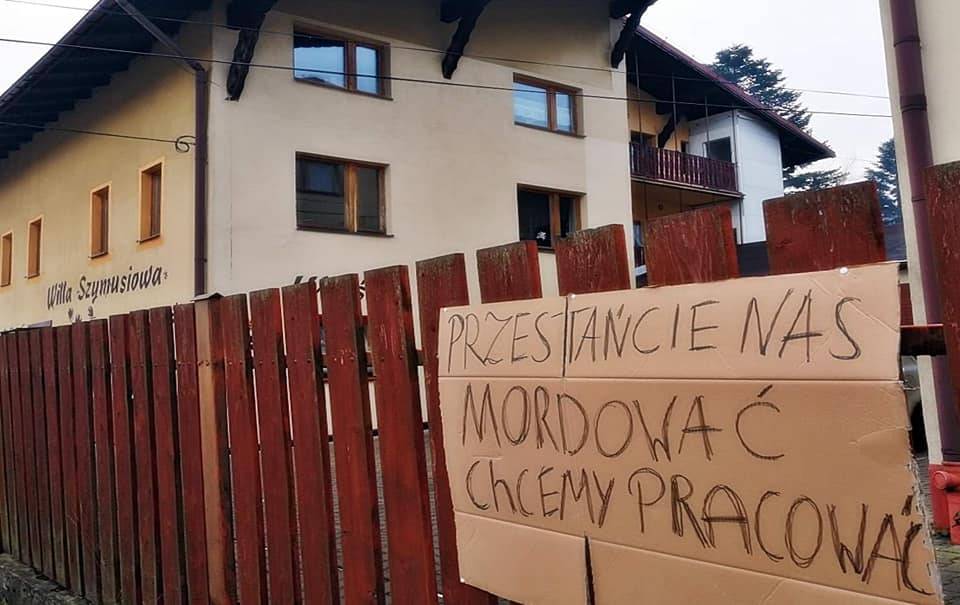 Willa Szymusiowa
PRZESTAŃCIE NAS
MORDOWAĆ
CHCEMY PRACOWAĆ